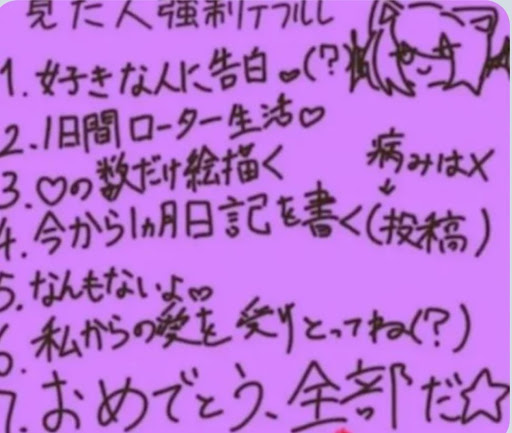 見た人強制イフルし
1. 好きな人に告白♡(?)
2. 1日間ローター生活♡
病みは×
3. ♡の数だけ絵描く
4. 今から1ヵ月日記を書く(投稿)
5. なんもないよ♡
6. 私からの愛を受けとってね(?)
7. おめでとう、全部だ☆